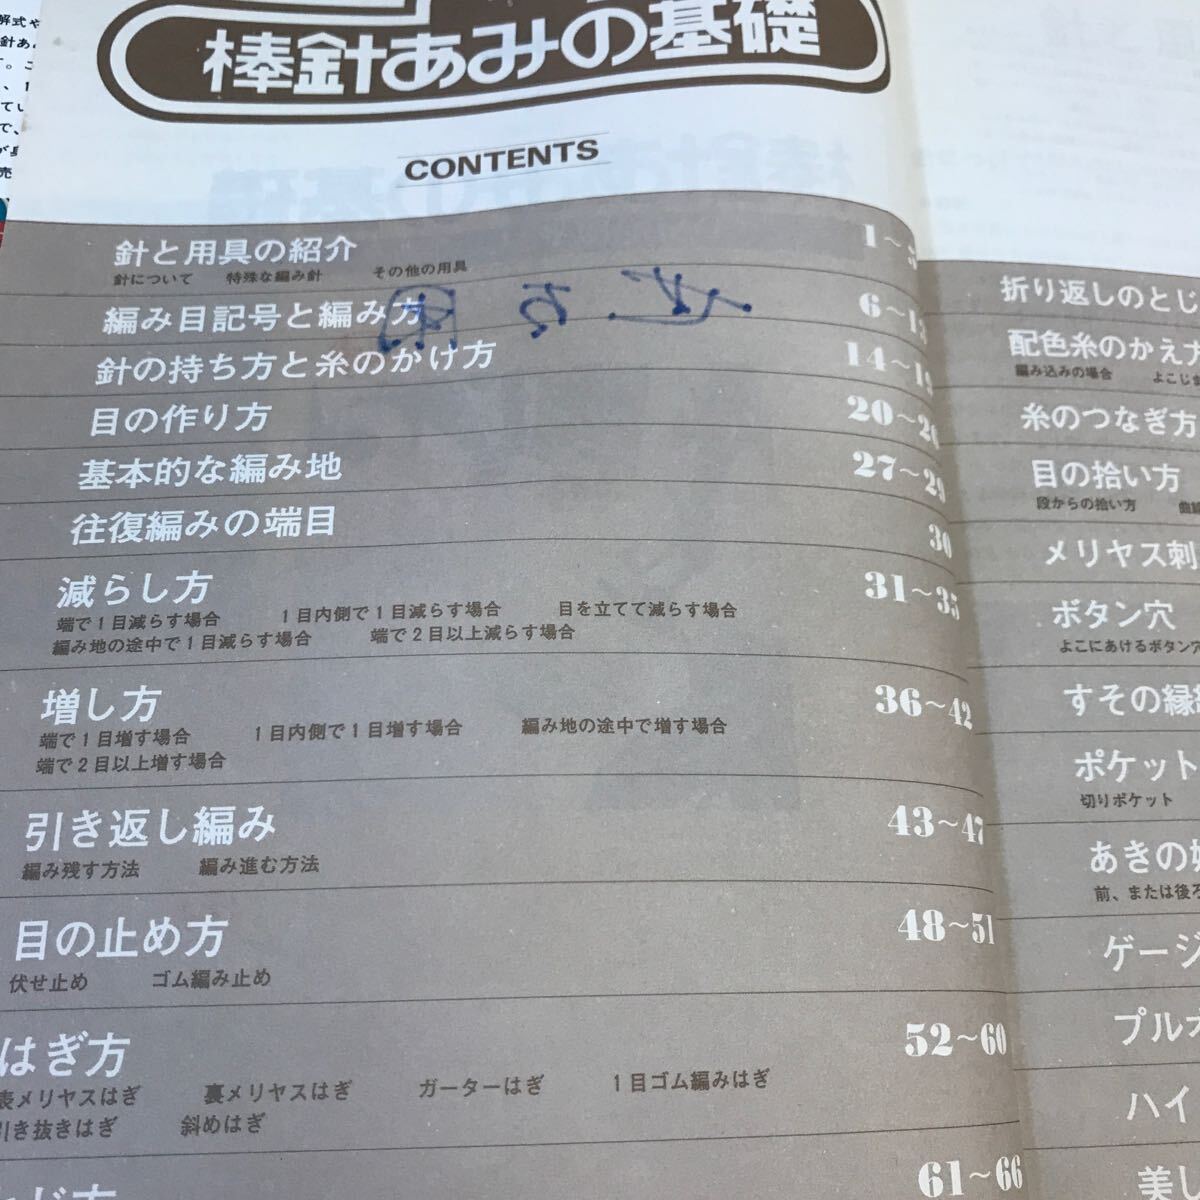 棒針あみの基礎
CONTENTS
針と用具の紹介 1~5
針について 特殊な編み針 その他の用具
編み目記号と編み方 6~13
針の持ち方と糸のかけ方 14~19
目の作り方 20~26
基本的な編み地 27~29
往復編みの端目 30
減らし方 31~35
端で1目減らす場合 1目内側で1目減らす場合 目を立てて減らす場合
編み地の途中で1目減らす場合 端で2目以上減らす場合
増し方 36~42
端で1目増す場合 1目内側で1目増す場合 編み地の途中で増す場合
端で2目以上増す場合
引き返し編み 43~47
編み残す方法 編み進む方法
目の止め方 48~51
伏せ止め ゴム編み止め
はぎ方 52~60
表メリヤスはぎ 裏メリヤスはぎ ガーターはぎ 1目ゴム編みはぎ
引き抜きはぎ 斜めはぎ
とじ方 61~66
折り返しのとじ
配色糸のかえ方
編み込みの場合 よこじま
糸のつなぎ方
目の拾い方
段からの拾い方 曲線
メリヤス刺
ボタン穴
よこにあけるボタン穴
すその縁
ポケット
切りポケット
あきの
前、または後ろ
ゲージ
プル
ハイ
美し